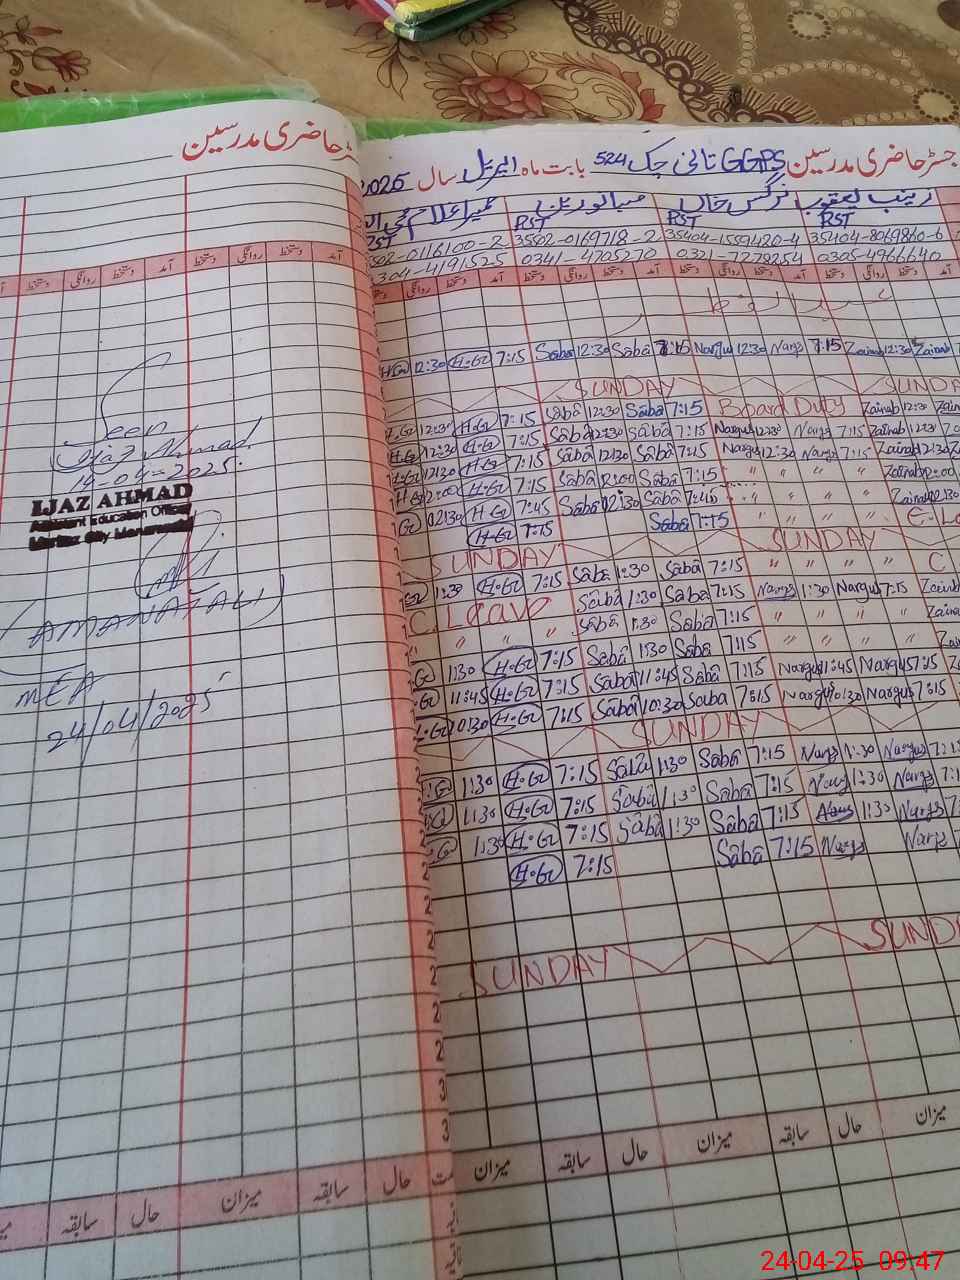 رجسٹر حاضری مدرسین
Seen
Ijaz Ahmad
14-04-2025
IJAZ AHMAD
Assistant Education Officer
(AMANAT ALI)
MEA
24/04/2025
میزان حال سابقہ میزان حال سابقہ
رجسٹر حاضری مدرسین GGPS چک 524 بابت ماہ اپریل سال 2025
زینب یعقوب نرگس خان صبا نورین
RST RST RST RST
35502-0169718-2 35404-1559420-4 35404-8069860-6
0341-4705270 0321-7279254 0305-4966640
آمد دستخط روانگی دستخط آمد دستخط روانگی دستخط آمد دستخط روانگی دستخط
عید الفطر
12:30 H.G 7:15 Saba 12:30 Saba 7:15 Nargus 12:30 Nargs 7:15 Zainab 12:30 Zainab
SUNDAY SUNDAY
12:30 H.G 7:15 Saba 12:30 Saba 7:15 Board Duty Zainab 12:30
12:30 H.G 7:15 Saba 12:30 Saba 7:15 Nargus 12:30 Nargs 7:15 Zainab 12:30
12:30 H.G 7:15 Saba 12:30 Saba 7:15 Nargus 12:30 Nargs 7:15 Zainab 12:30
H.G 7:15 Saba 12:00 Saba 7:15 " " " " Zainab 12:00
02:30 H.G 7:45 Saba 02:30 Saba 7:45 " " " Zainab 02:30
H.G 7:15 Saba 7:15 " " " "
SUNDAY SUNDAY
1:30 H.G 7:15 Saba 1:30 Saba 7:15 " " " " C
C. Leave Saba 1:30 Saba 7:15 Nargs 1:30 Nargus 7:15 Zainab
" " " Saba 1:30 Saba 7:15 " " " " Zainab
1:30 H.G 7:15 Saba 1:30 Saba 7:15 " " " "
11:45 H.G 7:15 Saba 11:45 Saba 7:15 Nargus 11:45 Nargus 7:15
10:30 H.G 7:15 Saba 10:30 Saba 7:15 Nargus 10:30 Nargus 7:15
SUNDAY
1:30 H.G 7:15 Saba 1:30 Saba 7:15 Nargs 1:30 Nargus
1:30 H.G 7:15 Saba 1:30 Saba 7:15 Nargs 1:30 Nargs
1:30 H.G 7:15 Saba 1:30 Saba 7:15 Nargs 1:30 Nargs
H.G 7:15 Saba 7:15 Nargs Nargs
SUNDAY SUND
میزان حال سابقہ میزان حال سابقہ میزان
24-04-25 09:47